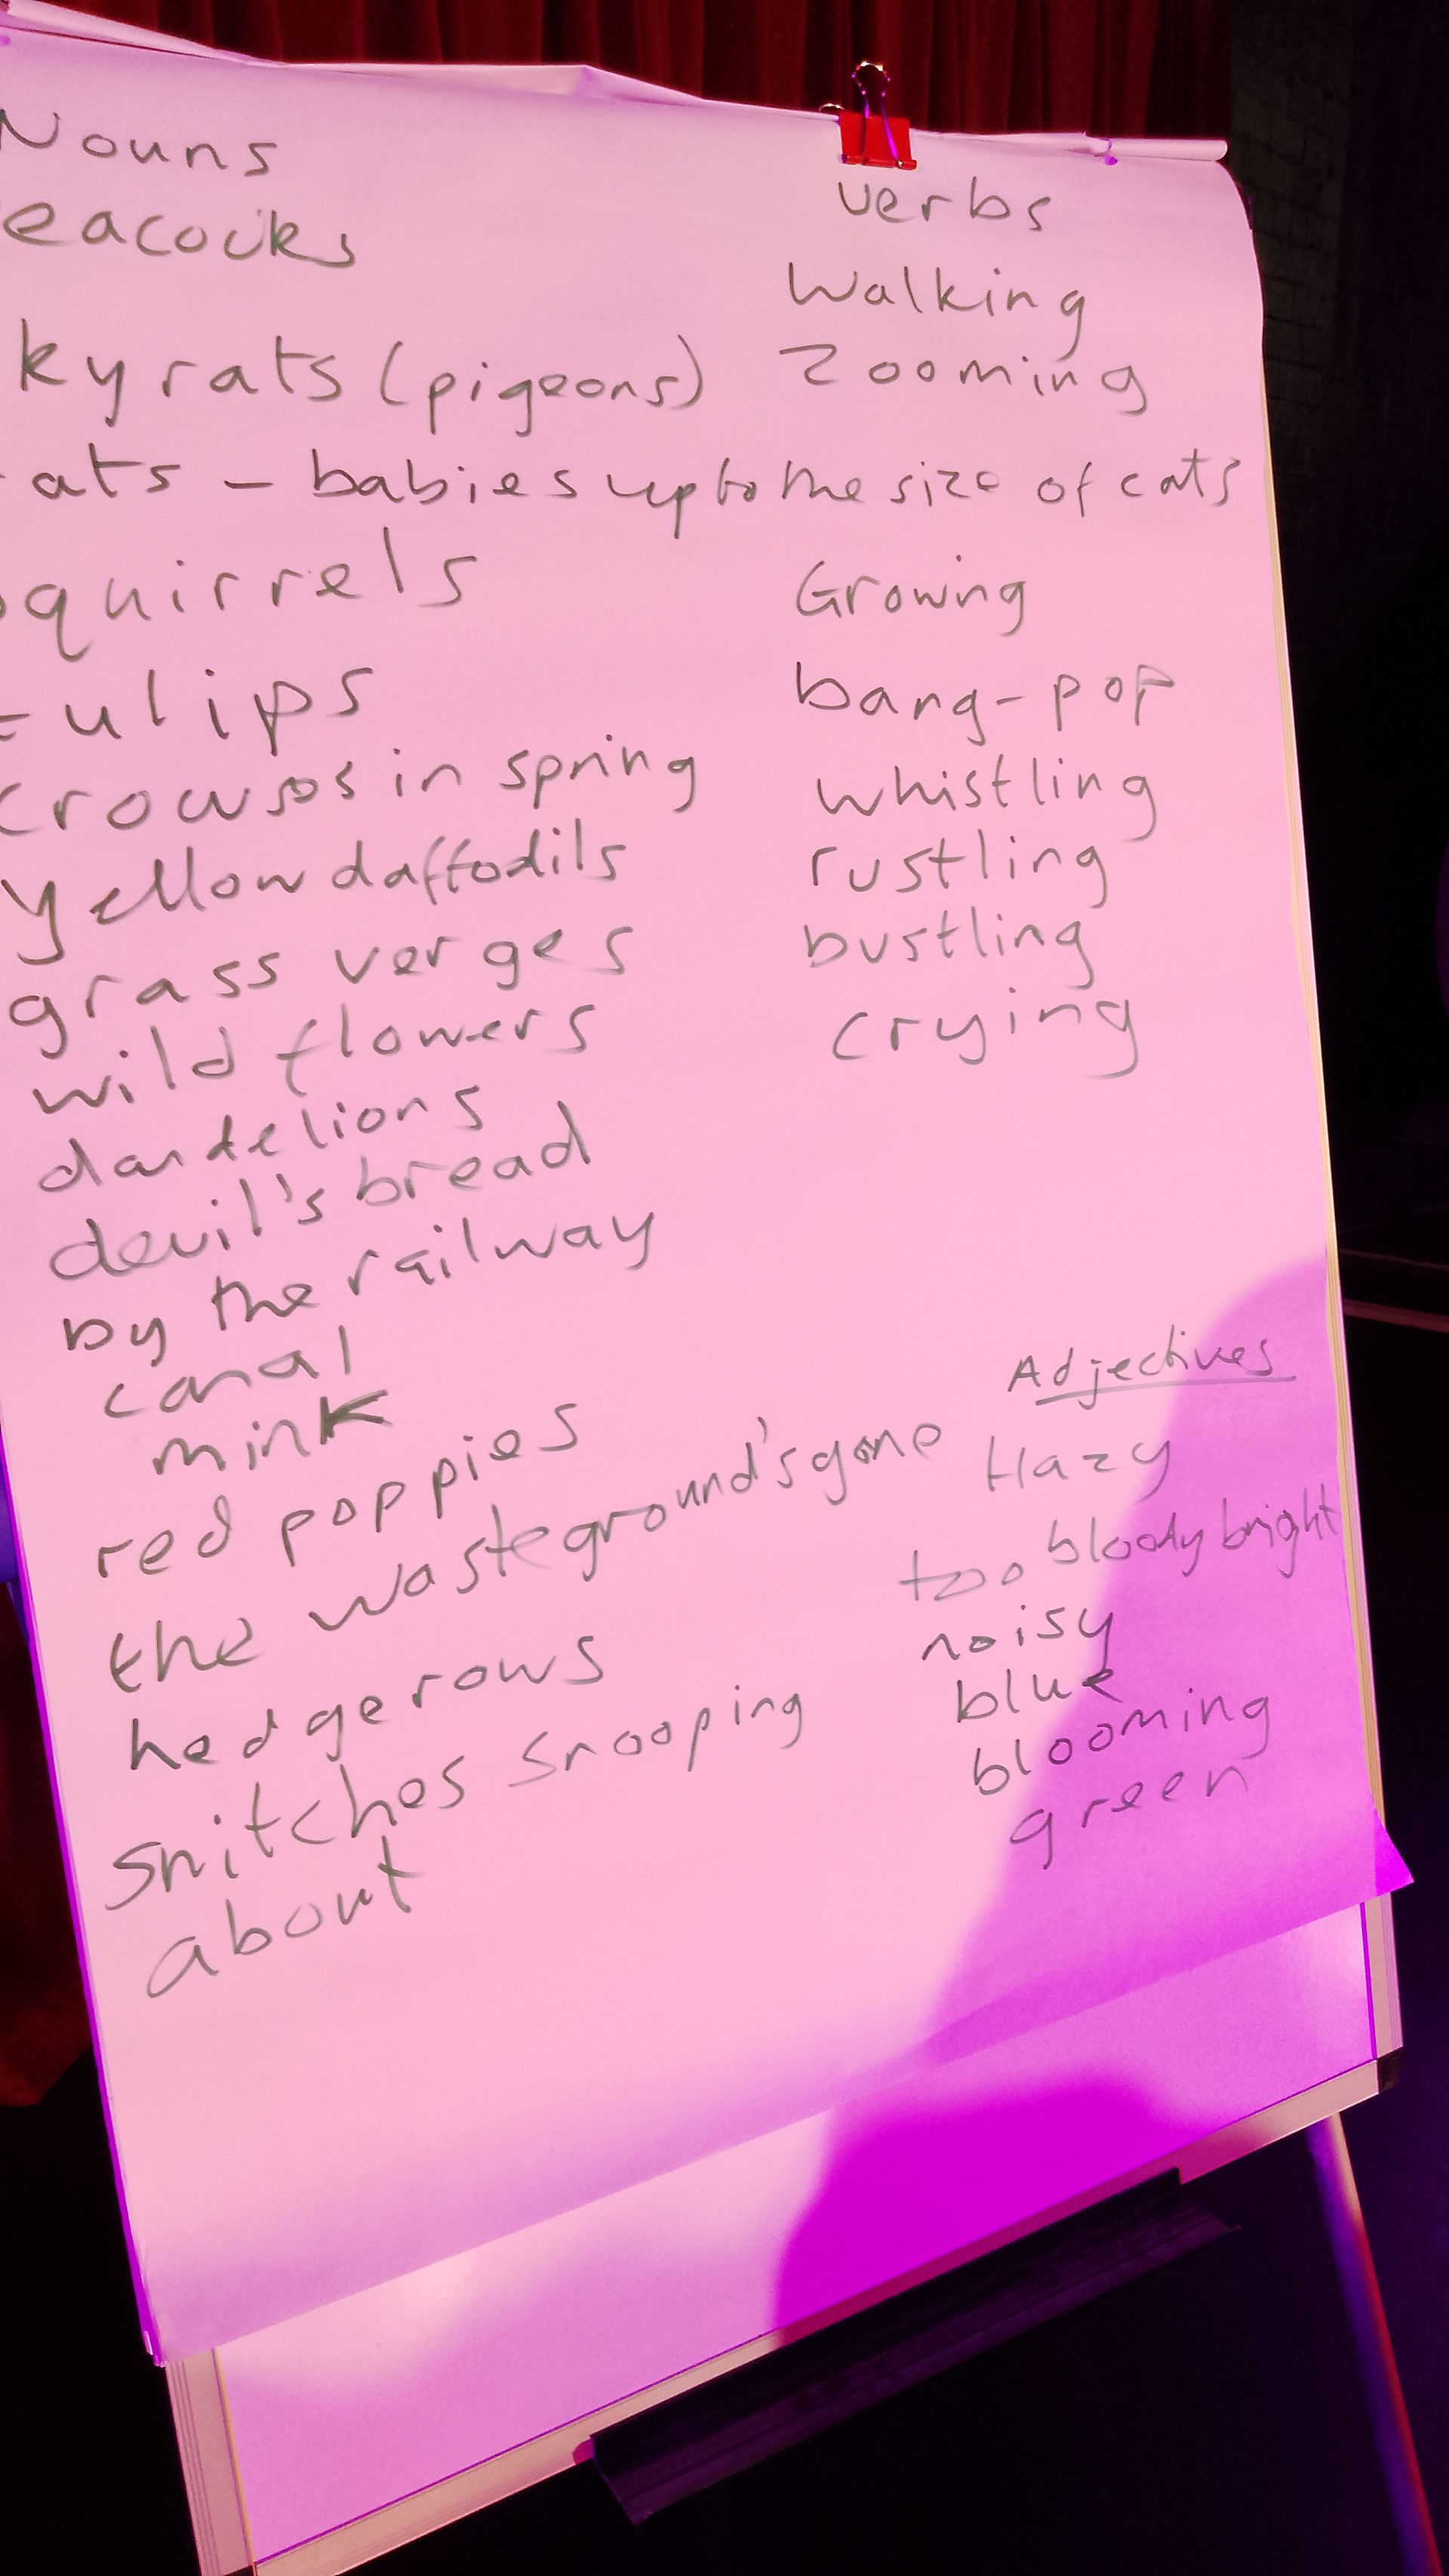 Nouns
eacocks
ky rats (pigeons)
ats - babies up to the size of cats
squirrels
tulips
in spring
yellow daffodils
grass verges
wild flowers
dandelions
devil's bread
by the railway
canal
mink
red poppies
the wasteground's gone
hedgerows
snitches snooping
about
verbs
Walking
Zooming
Growing
bang-pop
whistling
rustling
bustling
crying
Adjectives
Hazy
too bloody bright
noisy
blue
blooming
green